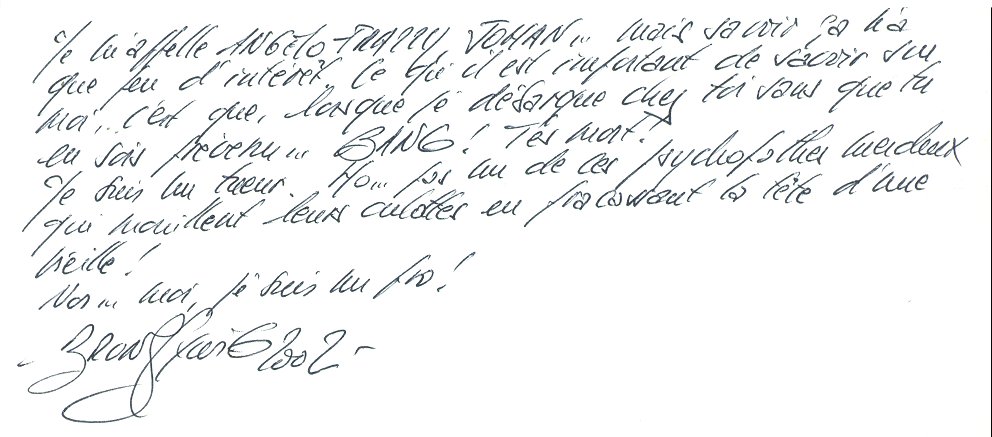 Je m'appelle ANGELO FRAZZY JOHAN... mais savoir ça n'a
que peu d'intérêt. Ce qu'il est important de savoir sur
moi... c'est que, lorsque je débarque chez toi sans que tu
en sois prévenu... BANG! T'es mort!
Je suis un tueur. Ho... pas un de ces psychopathes merdeux
qui mouillent leurs culottes en fracassant la tête d'une
vieille!
Non... moi, je suis un pro!
2002